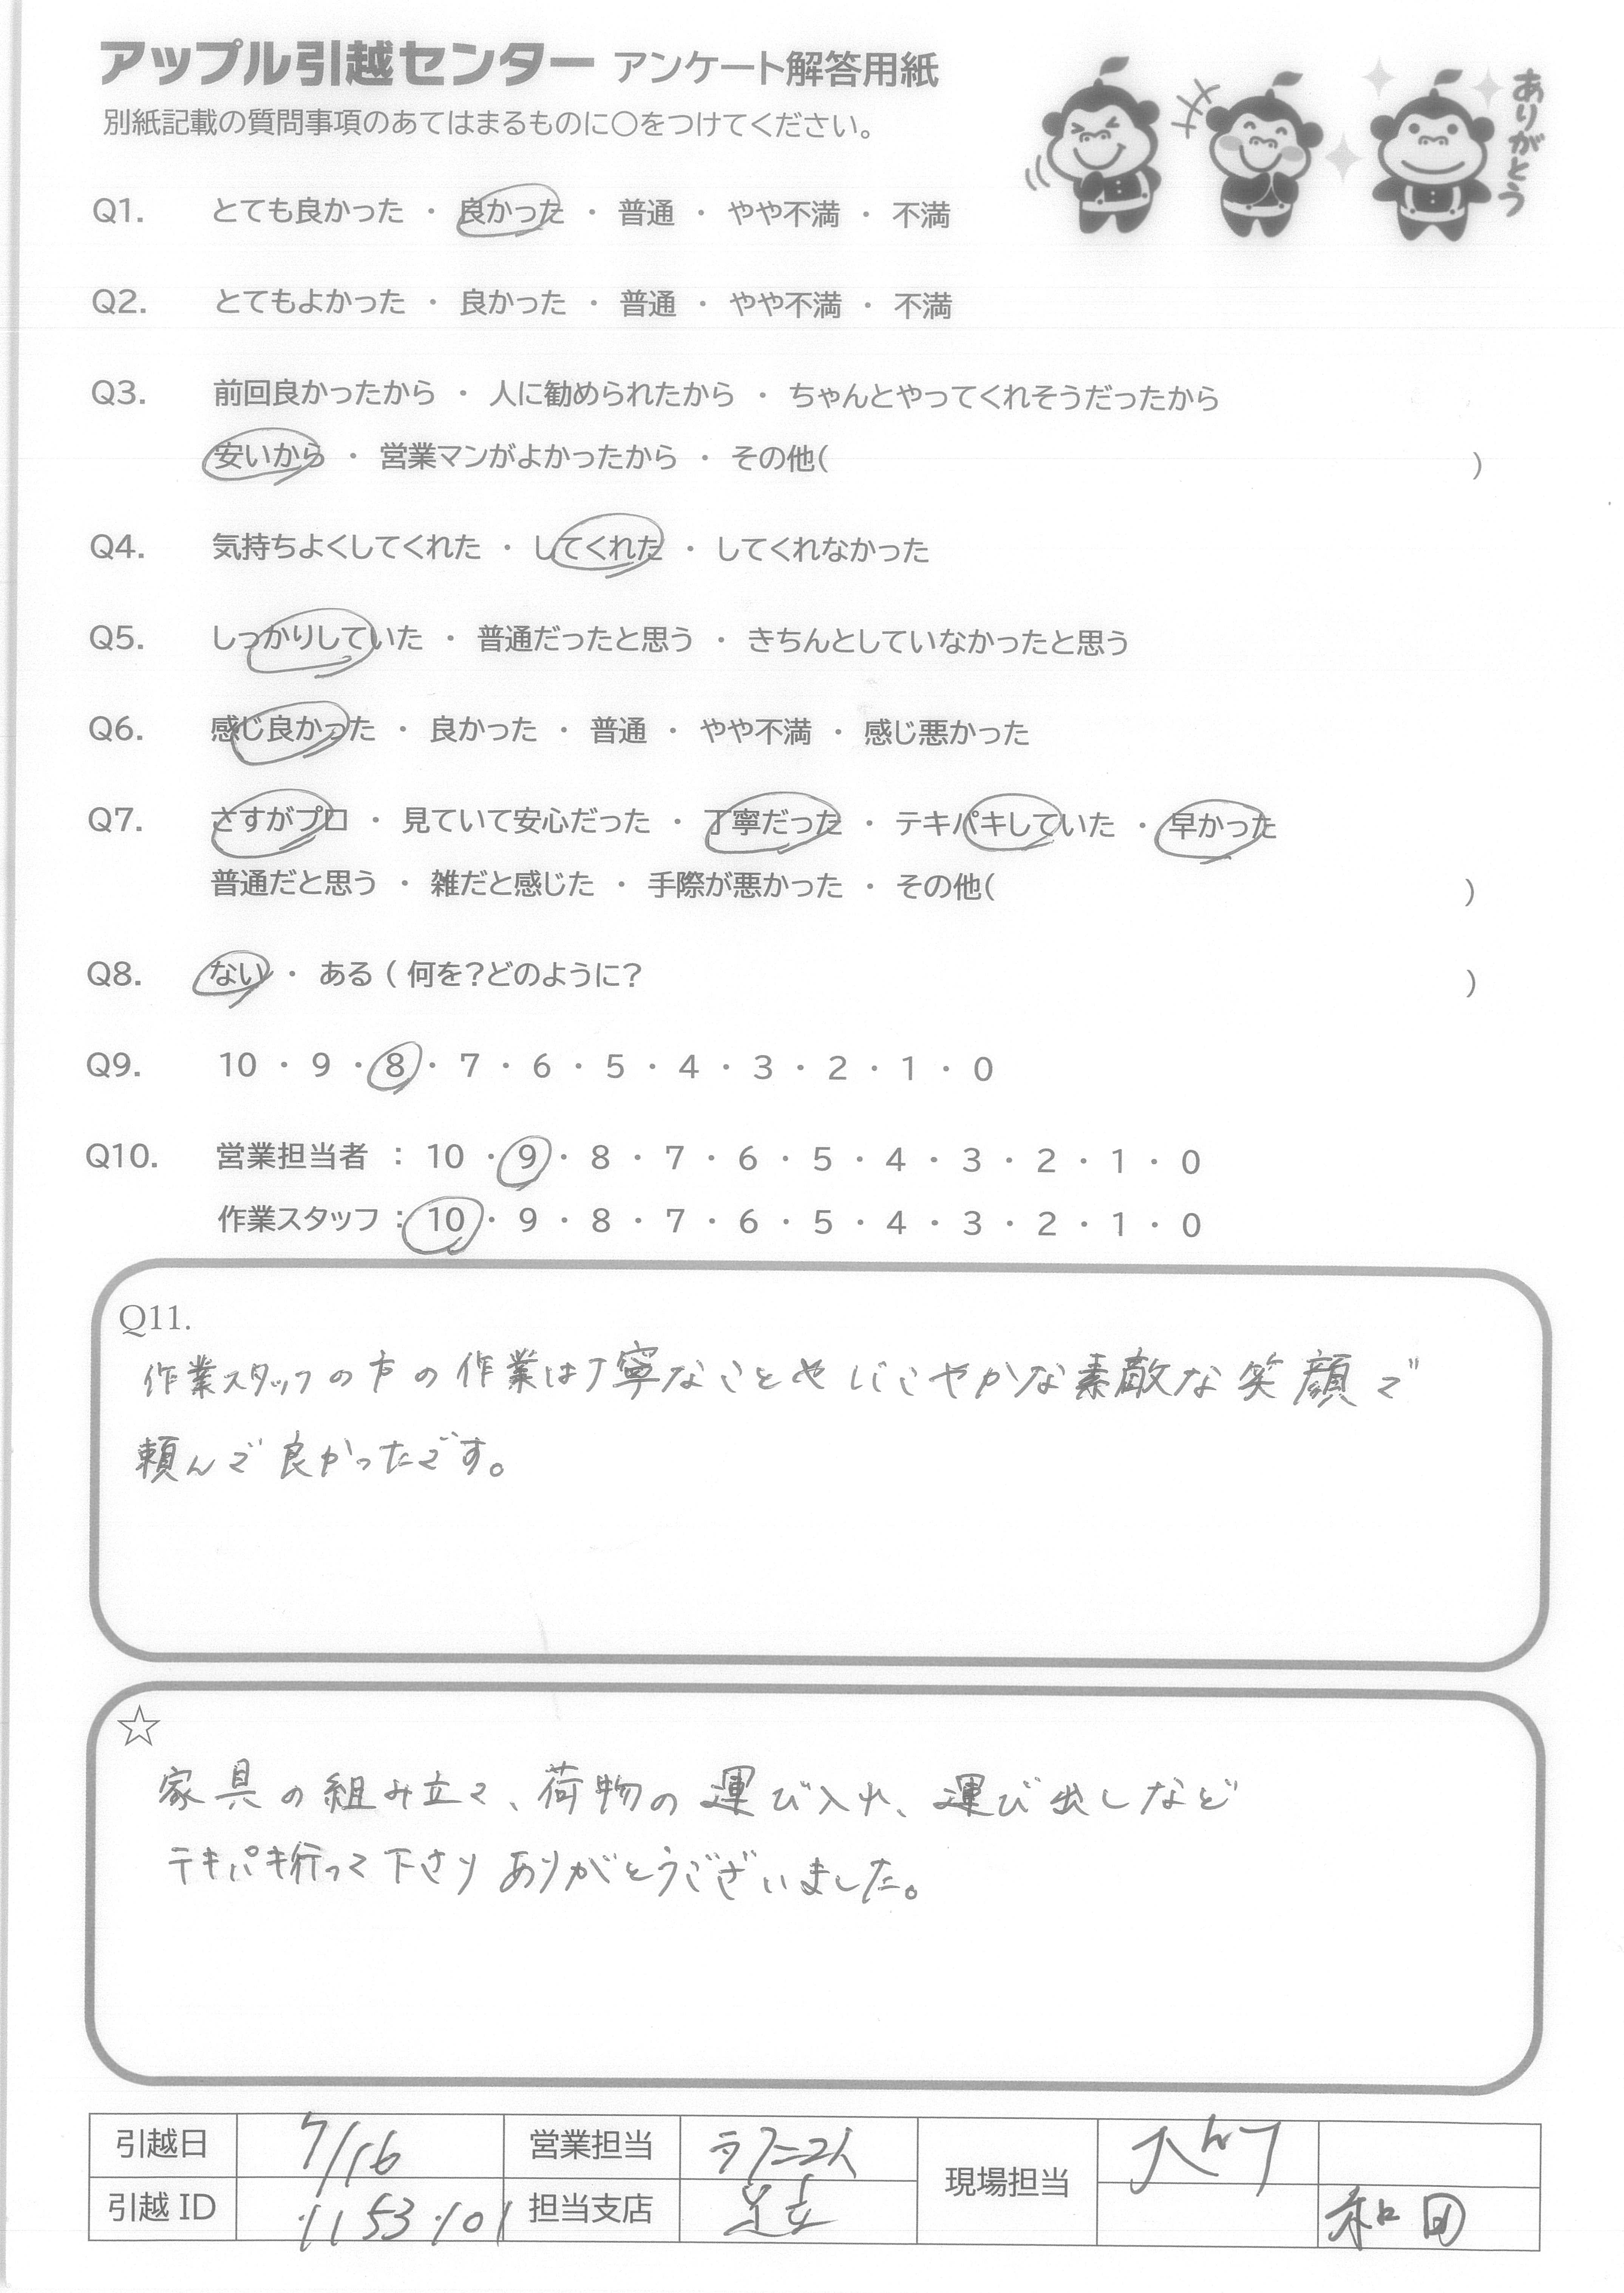 アップル引越センター アンケート解答用紙
別紙記載の質問事項のあてはまるものに○をつけてください。
ありがとう
Q1. とても良かった ・ 良かった ・ 普通 ・ やや不満 ・ 不満
Q2. とてもよかった ・ 良かった ・ 普通 ・ やや不満 ・ 不満
Q3. 前回良かったから ・ 人に勧められたから ・ ちゃんとやってくれそうだったから
安いから ・ 営業マンがよかったから ・ その他( )
Q4. 気持ちよくしてくれた ・ してくれた ・ してくれなかった
Q5. しっかりしていた ・ 普通だったと思う ・ きちんとしていなかったと思う
Q6. 感じ良かった ・ 良かった ・ 普通 ・ やや不満 ・ 感じ悪かった
Q7. さすがプロ ・ 見ていて安心だった ・ 丁寧だった ・ テキパキしていた ・ 早かった
普通だと思う ・ 雑だと感じた ・ 手際が悪かった ・ その他( )
Q8. ない ・ ある ( 何を?どのように? )
Q9. 10 ・ 9 ・ 8 ・ 7 ・ 6 ・ 5 ・ 4 ・ 3 ・ 2 ・ 1 ・ 0
Q10. 営業担当者 : 10 ・ 9 ・ 8 ・ 7 ・ 6 ・ 5 ・ 4 ・ 3 ・ 2 ・ 1 ・ 0
作業スタッフ : 10 ・ 9 ・ 8 ・ 7 ・ 6 ・ 5 ・ 4 ・ 3 ・ 2 ・ 1 ・ 0
Q11.
作業スタッフの方の作業は丁寧なことやにこやかな素敵な笑顔で
頼んで良かったです。
☆
家具の組み立て、荷物の運び入れ、運び出しなど
テキパキ行って下さりありがとうございました。
引越日 7/16 営業担当 現場担当
引越 ID 1153101 担当支店 足立 和田